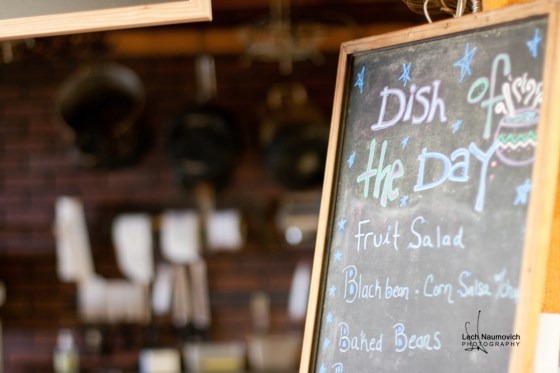 Dish of
the Day
Fruit Salad
Blachbean · Corn Salsa
Baked Bears
Lech Naumovich
PHOTOGRAPHY